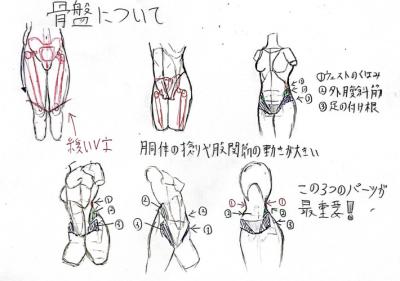 骨盤について
①ウェストのくぼみ
②外腹斜筋
③足の付け根
緩いV字
胴体の捻りや股関節の動きが大きい
①
②
③
①
②
③
②
③
②
①
①
①
②
③
この3つのパーツが
最重要!!